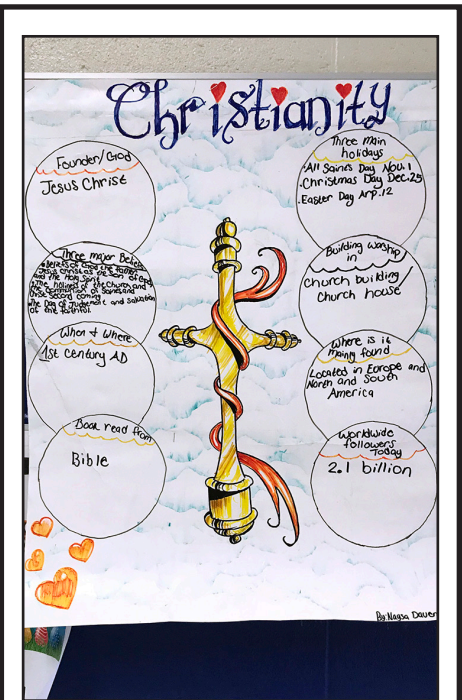 Christianity
Founder/God
Jesus Christ
Three major Beliefs
Beliefs of God the Father
Jesus christ as the son of God
and the Holy Spirit
The holiness of the Church and
the communion of Saints and
Christ Second coming
The Day of Judgement and Salvation
of the faithful.
When & Where
1st century AD
Book read from
Bible
Three main
holidays
·All Saints Day Nov. 1
·Christmas Day Dec. 25
·Easter Day Arp. 12
Building worship
in
Church building/
Church house
Where is it
mainly found
Located in Europe and
North and South
America
Worldwide
followers
Today
2.1 billion
By: Nagsa